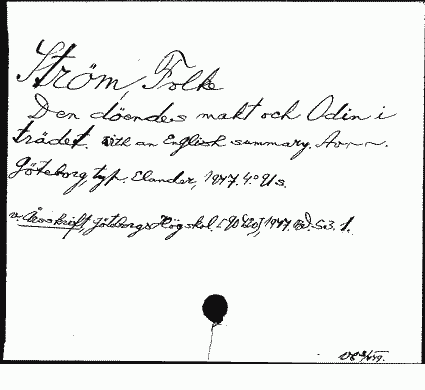 Ström, Folke
Den döendes makt och Odin i
trädet. With an English summary.
Göteborg, typ. Elander, 1947. 4:o
v. Årsskrift, Göteborgs Högskol. 1947. Bd. 53. 1.